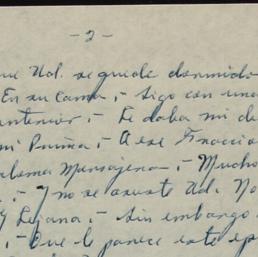 - 2 -
ue Ud. se quede dormido
En su cama, - Sigo con una
anterior, - Le daba mi de
mi Puriña; - A ese Fraccio
aloma Mensajera - Mucho
; - Y no se asuste Ud. No
y Lejana; - Sin embargo
; - Que le parece este ep